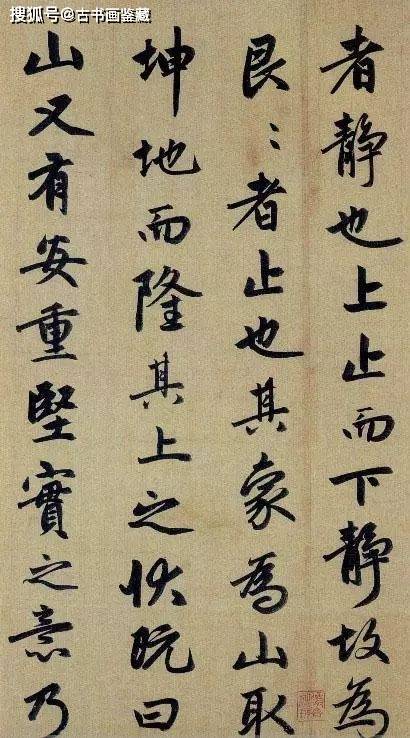 搜狐号@古书画鉴藏
者静也上止而下静故為
艮〻者止也其象為山取
坤地而隆其上之狀既曰
山又有安重堅實之意乃